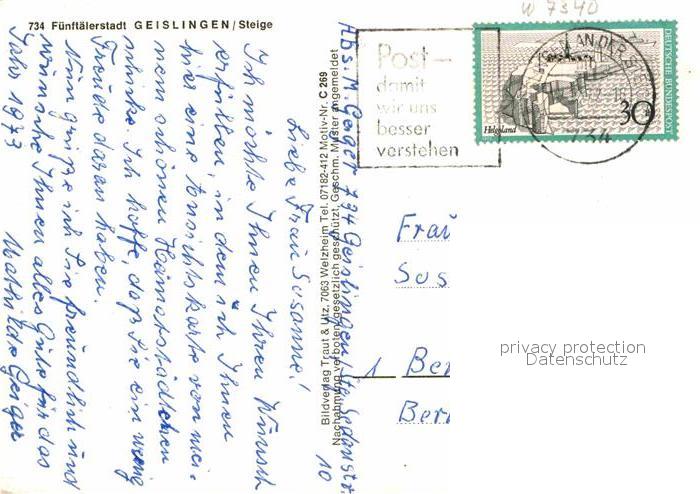 W 7340
734 Fünftälerstadt GEISLINGEN/Steige
Liebe Frau Susanne!
Ich möchte Ihnen Ihren Wunsch
erfüllen, in dem ich Ihnen
hier eine Ansichtskarte von mei-
nem schönen Heimatstädtchen
schicke. Ich hoffe, daß Sie ein wenig
Freude daran haben.
Nun grüße ich Sie freundlich und
wünsche Ihnen alles Gute für das
Jahr 1973
Mathilde Geiger
Bildverlag Traut & Utz, 7063 Welzheim Tel. 07182-412 Motiv-Nr. C 269
Nachahmung verboten, gesetzlich geschützt, Geschm. Muster angemeldet
Abs. M. Geiger 734 Geislingen
10
Post-
damit
wir uns
besser
verstehen
AN DER STEIGE
734
DEUTSCHE BUNDESPOST
Helgoland
30
Frau
Sus
1 Ber
Berl
privacy protection
Datenschutz